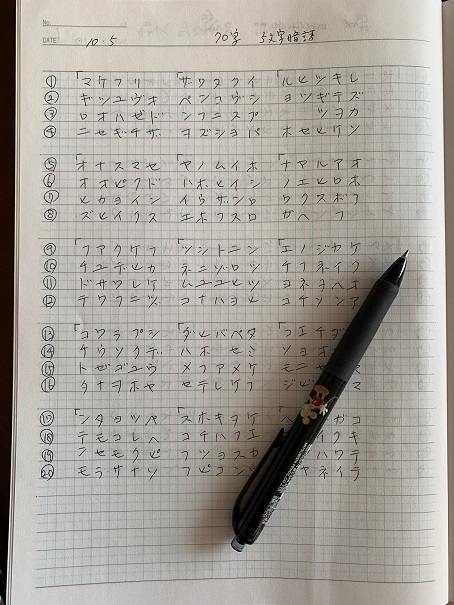 No.
DATE 10.5 70字 5文字暗語
① 「マケフリ 「ザワヌクイ ルヒツキレ
② ギツユヴオ ペンコヴシ ョヅギテズ
③ ロオハゼド ンフニスプ ヅヨカ
④ ニセギチザ ヨズショパ ホセヒケン
⑤ 「オナスマセ 「ヤノムイホ 「ナヤルアオ
⑥ オオピクド ハホメイシ ノエヒロホ
⑦ ヒカヨイシ イウザンロ ワクスボフ
⑧ ズレイクス エホフスロ ガヘ フ
⑨ 「フアクケフ 「ツシトニン 「エノジカケ
⑩ チユデヒカ ネニソロツ チフネイク
⑪ ドサワレケ ムユユヒソ ヨネヨヘオ
⑫ テワクニヅ コナハヨヒ コチソンア
⑬ 「コワラプシ 「ダヒバベタ 「コエチ
⑭ チウソクデ ハホ セミ ソヨオ
⑮ トゼゴユウ メファメケ モニヤ
⑯ タナヨホヤ セテレケフ ジピ マ
⑰ 「ンタョツヤ 「スホキヌケ 「ヘ ガコ
⑱ テモコレヘ コチハフエ イクキ
⑲ ンセモクビ フツョスカ ハワテ
⑳ モラサナソ フピコン ヤネイテ